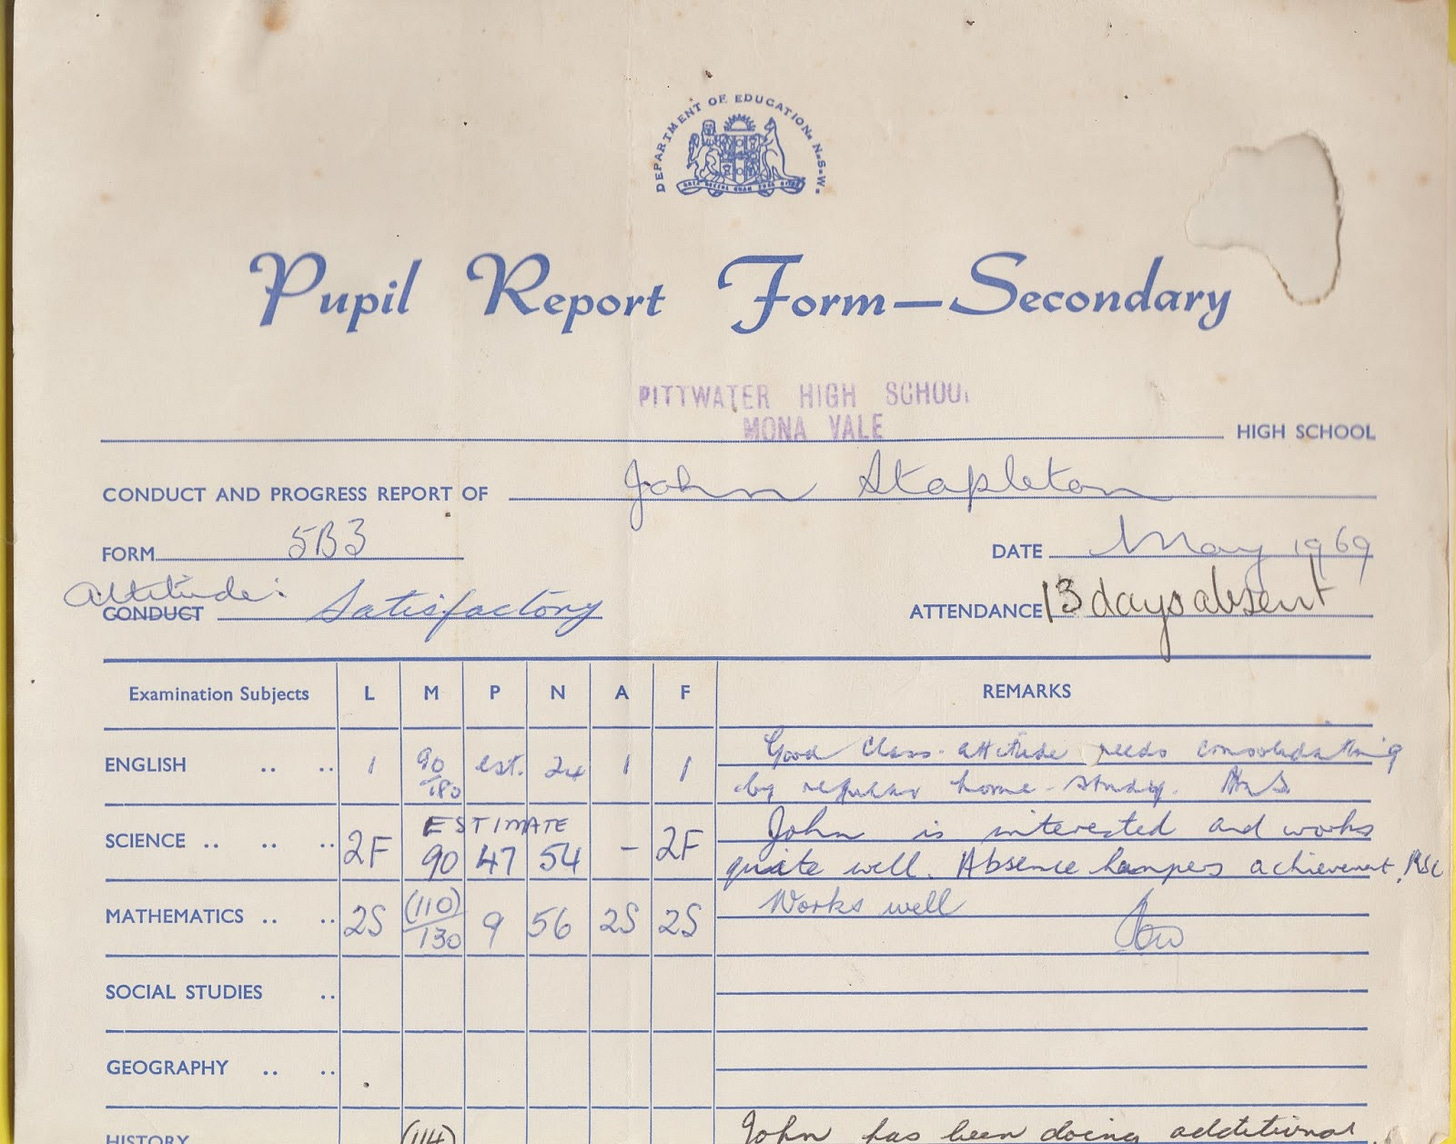 DEPARTMENT OF EDUCATION. N.S.W.
Pupil Report Form—Secondary
PITTWATER HIGH SCHOOL
MONA VALE
HIGH SCHOOL
CONDUCT AND PROGRESS REPORT OF John Stapleton
FORM 5B3 DATE May 1969
Attitude:
CONDUCT Satisfactory ATTENDANCE 13 days absent
Examination Subjects L M P N A F REMARKS
ENGLISH .. .. 1 90/180 est. 24 1 1 Good class-attitude needs consolidating
by regular home-study.
ESTIMATE
SCIENCE .. .. .. 2F 90 47 54 – 2F John is interested and works
quite well. Absence hampers achievement.
MATHEMATICS .. .. 2S (110)/130 9 56 2S 2S Works well
SOCIAL STUDIES ..
GEOGRAPHY .. ..
HISTORY (114) John has been doing additional